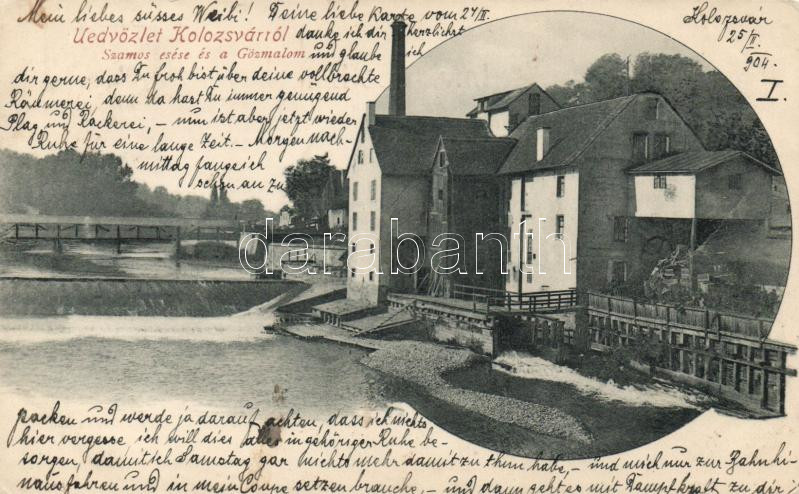 Mein liebes süsses Weibi! Deine liebe Karte vom 24/II.
danke ich dir herzlichst
und glaube ich
dir gerne, dass Du froh bist über deine vollbrachte
Räumerei, denn da hast Du immer genügend
Plag und Rackerei, – nun ist aber jetzt wieder
Ruhe für eine lange Zeit. – Morgen nach-
mittag fange ich
schon an zu
Kolozsvár
25/II.
904.
I.
Üdvözlet Kolozsvárról
Szamos esése és a Gőzmalom
darabanth.com
packen und werde ja darauf achten, dass ich nichts
hier vergesse ich will dies alles in gehöriger Ruhe be-
sorgen, damit ich Samstag gar nichts mehr damit zu thun habe, – und mich nur zur Bahn hi-
nausfahren und in mein Coupé setzen brauche, – und dann geht es mit Dampfkraft zu dir!